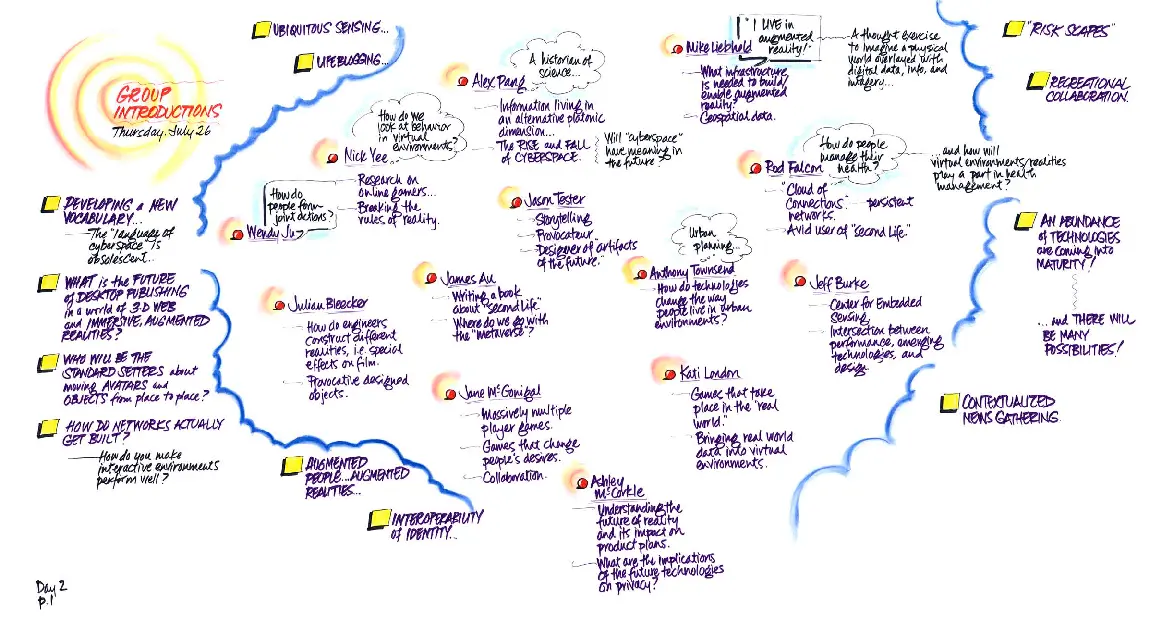 GROUP
INTRODUCTIONS
Thursday, July 26
UBIQUITOUS SENSING...
LIFEBUGGING...
DEVELOPING A NEW
VOCABULARY...
The "language of
cyberspace" is
obsolescent...
WHAT is the FUTURE
of DESKTOP PUBLISHING
in a world of 3-D WEB
and IMMERSIVE, AUGMENTED
REALITIES?
WHO WILL BE THE
STANDARD SETTERS about
moving AVATARS and
OBJECTS from place to place?
HOW DO NETWORKS ACTUALLY
GET BUILT?
How do you make
interactive environments
perform well?
AUGMENTED
PEOPLE...AUGMENTED
REALITIES...
INTEROPERABILITY
OF IDENTITY...
Wendy Ju
How do
people form
joint actions?
Nick Yee
How do we
look at behavior
in virtual
environments?
Research on
online gamers...
Breaking the
rules of reality.
Alex Pang
A historian of
science...
Information living in
an alternative platonic
dimension...
The RISE and FALL
of CYBERSPACE.
Will "cyberspace"
have meaning in
the future?
Mike Liebhold
"I LIVE in
augmented
reality!"
A thought exercise
to imagine a physical
world overlayed with
digital data, info, and
imagery...
What infrastructure
is needed to build/
enable augmented
reality?
Geospatial data.
Jason Tester
Storytelling
Provocateur.
Designer of "artifacts
of the future."
Rod Falcon
How do people
manage their
health?
...and how will
virtual environments/realities
play a part in health
management?
"Cloud of
Connections"
networks.
persistent
Avid user of "Second Life."
Julian Bleecker
How do engineers
construct different
realities, i.e. special
effects on film.
Provocative designed
objects.
James Au
Writing a book
about "Second Life"
Where do we go with
the "metaverse"?
Anthony Townsend
Urban
planning...
How do technologies
change the way
people live in urban
environments?
Jeff Burke
Center for Embedded
Sensing.
Intersection between
performance, emerging
technologies, and
design.
Jane McGonigal
Massively multiple
player games.
Games that change
people's desires.
Collaboration.
Kati London
Games that take
place in the "real
world."
Bringing real world
data into virtual
environments.
Ashley
McCorkle
Understanding the
future of reality
and its impact on
product plans.
What are the implications
of the future technologies
on privacy?
"RISK SCAPES"
RECREATIONAL
COLLABORATION.
AN ABUNDANCE
of TECHNOLOGIES
are coming into
MATURITY!
...and THERE WILL
BE MANY
POSSIBILITIES!
CONTEXTUALIZED
NEWS GATHERING.
Day 2
p.1